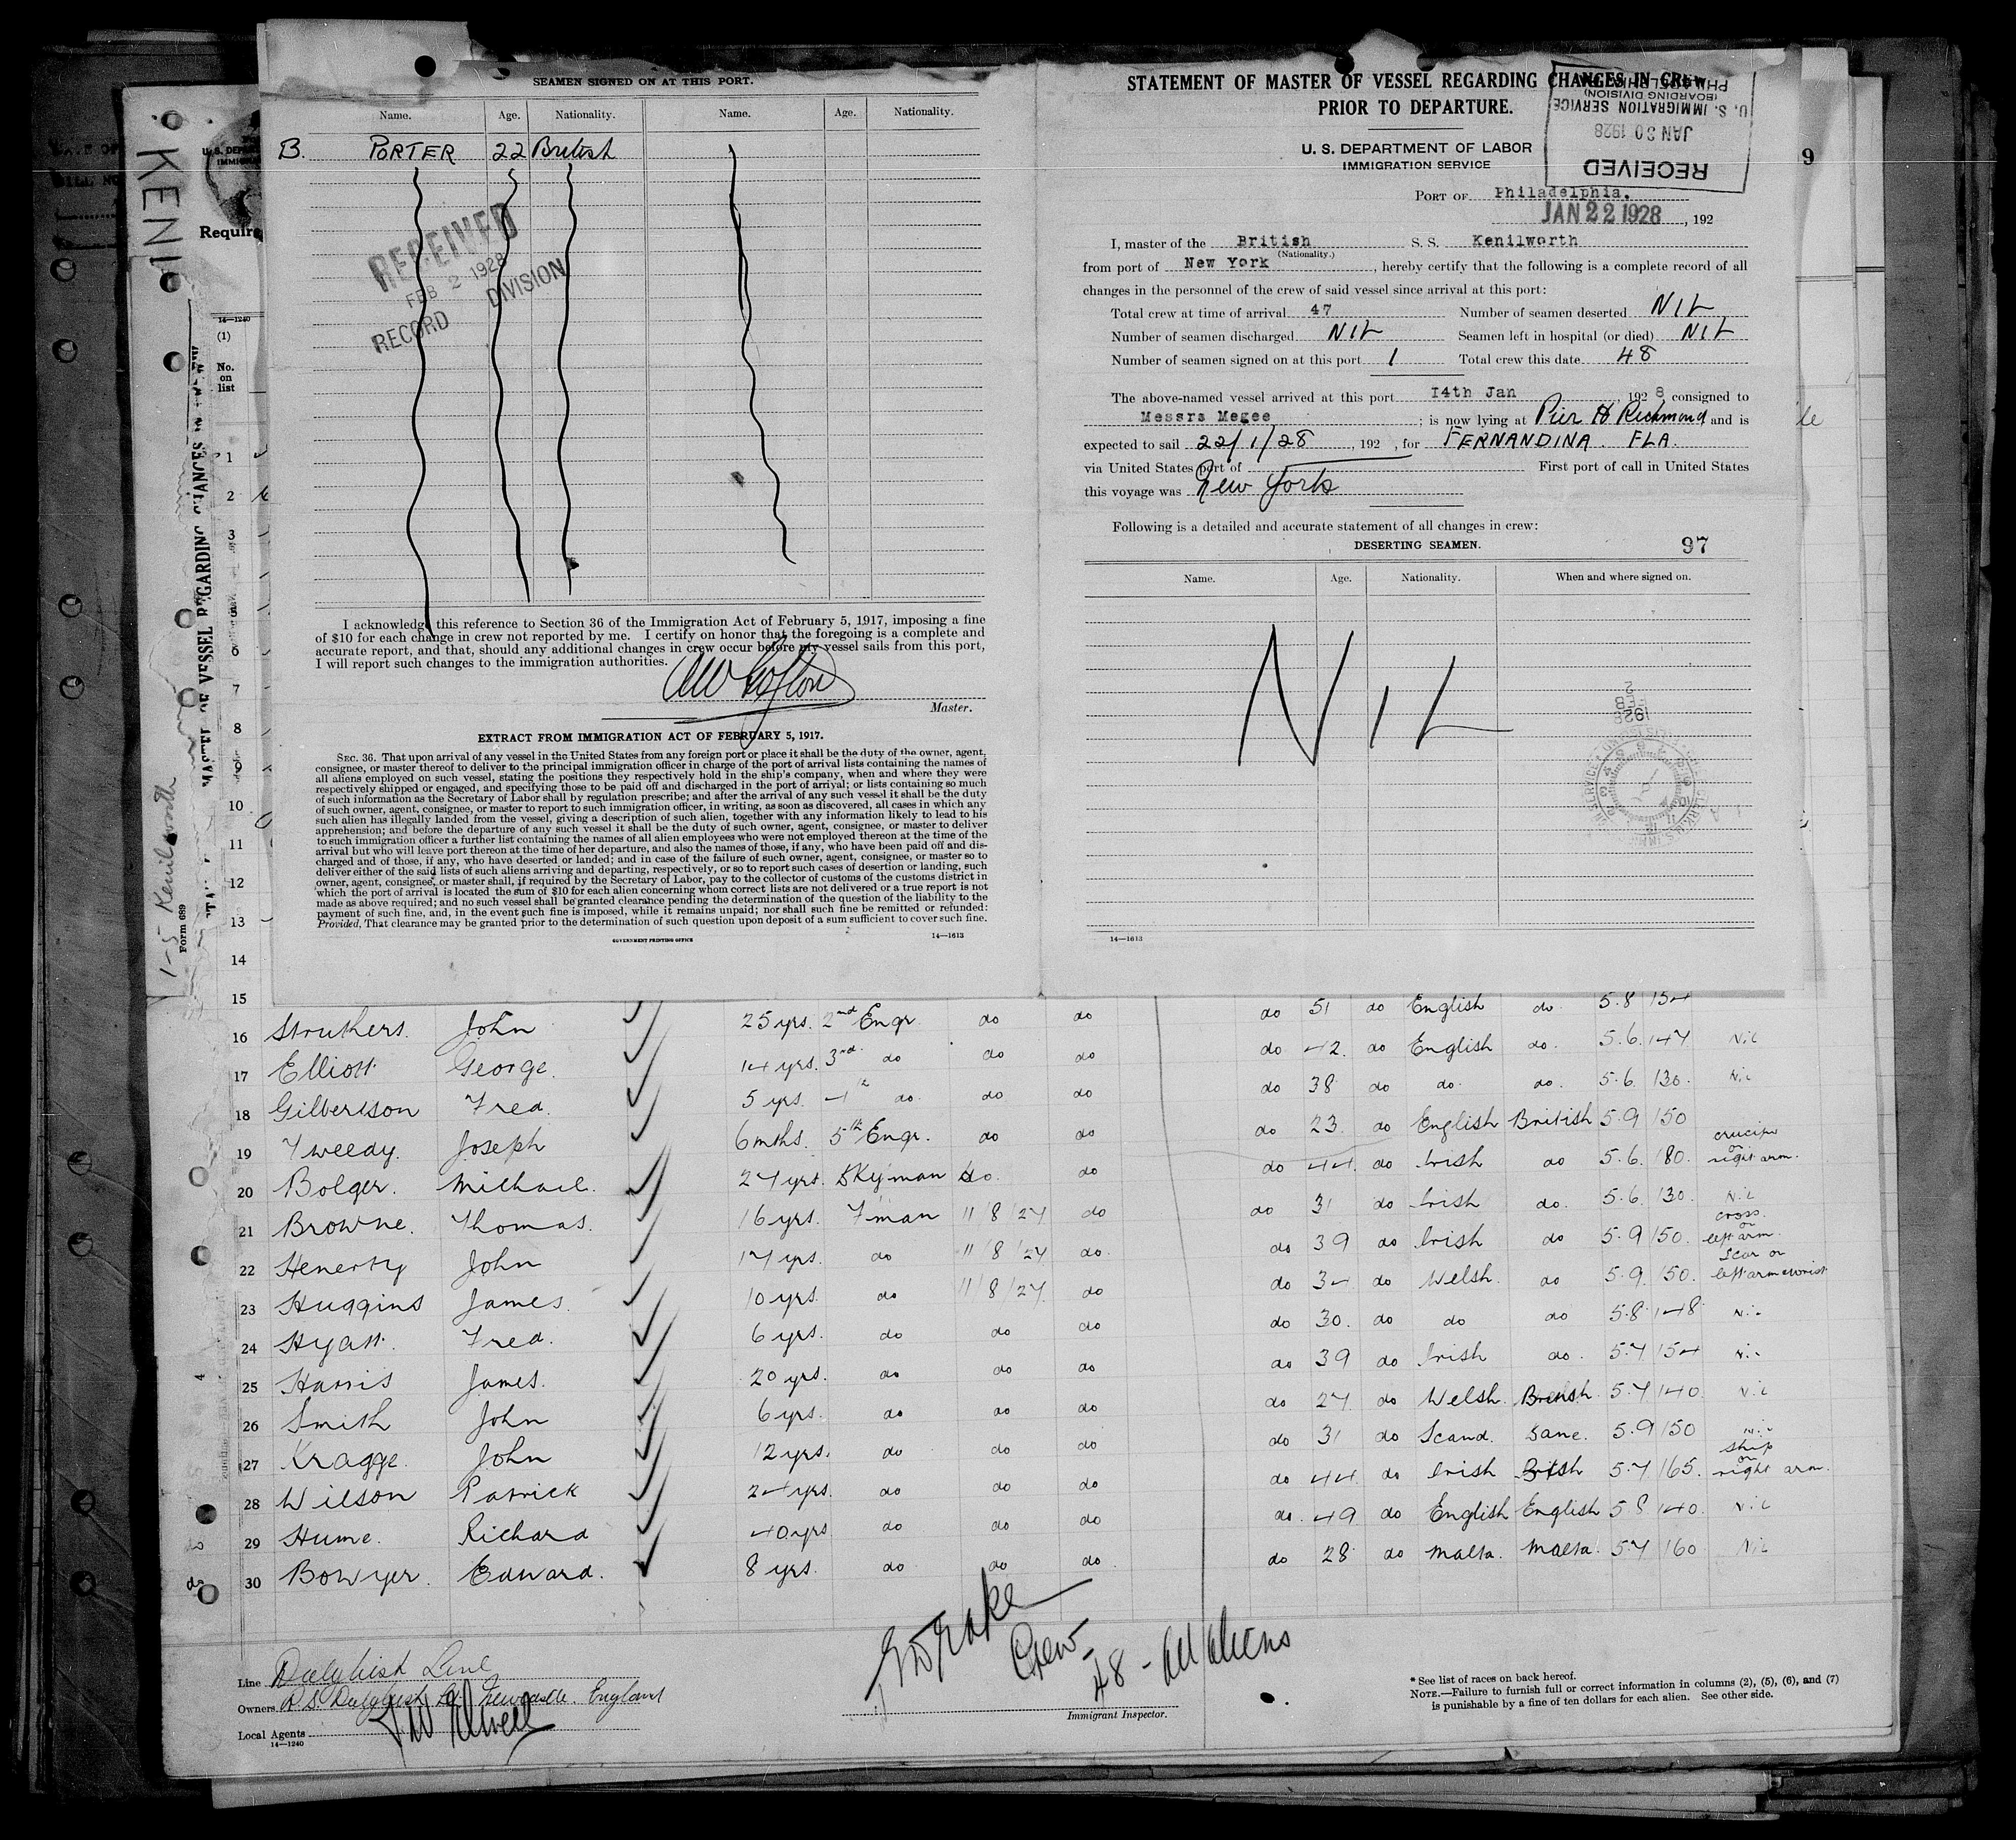 SEAMEN SIGNED ON AT THIS PORT.
Name. Age. Nationality. Name. Age. Nationality.
B. PORTER 22 British
RECEIVED
FEB 2 1928
DIVISION
RECORD
I acknowledge this reference to Section 36 of the Immigration Act of February 5, 1917, imposing a fine
of $10 for each change in crew not reported by me. I certify on honor that the foregoing is a complete and
accurate report, and that, should any additional changes in crew occur before my vessel sails from this port,
I will report such changes to the immigration authorities.
Master.
EXTRACT FROM IMMIGRATION ACT OF FEBRUARY 5, 1917.
SEC. 36. That upon arrival of any vessel in the United States from any foreign port or place it shall be the duty of the owner, agent,
consignee, or master thereof to deliver to the principal immigration officer in charge of the port of arrival lists containing the names of
all aliens employed on such vessel, stating the positions they respectively hold in the ship's company, when and where they were
respectively shipped or engaged, and specifying those to be paid off and discharged in the port of arrival; or lists containing so much
of such information as the Secretary of Labor shall by regulation prescribe; and after the arrival of any such vessel it shall be the duty
of such owner, agent, consignee, or master to report to such immigration officer, in writing, as soon as discovered, all cases in which any
such alien has illegally landed from the vessel, giving a description of such alien, together with any information likely to lead to his
apprehension; and before the departure of any such vessel it shall be the duty of such owner, agent, consignee, or master to deliver
to such immigration officer a further list containing the names of all alien employees who were not employed thereon at the time of the
arrival but who will leave port thereon at the time of her departure, and also the names of those, if any, who have been paid off and dis-
charged and of those, if any, who have deserted or landed; and in case of the failure of such owner, agent, consignee, or master so to
deliver either of the said lists of such aliens arriving and departing, respectively, or so to report such cases of desertion or landing, such
owner, agent, consignee, or master shall, if required by the Secretary of Labor, pay to the collector of customs of the customs district in
which the port of arrival is located the sum of $10 for each alien concerning whom correct lists are not delivered or a true report is not
made as above required; and no such vessel shall be granted clearance pending the determination of the question of the liability to the
payment of such fine, and, in the event such fine is imposed, while it remains unpaid; nor shall such fine be remitted or refunded:
Provided, That clearance may be granted prior to the determination of such question upon deposit of a sum sufficient to cover such fine.
GOVERNMENT PRINTING OFFICE 14—1613
STATEMENT OF MASTER OF VESSEL REGARDING CHANGES IN CREW
PRIOR TO DEPARTURE.
U. S. DEPARTMENT OF LABOR
IMMIGRATION SERVICE
RECEIVED
JAN 30 1928
U. S. IMMIGRATION SERVICE
(BOARDING DIVISION)
PHILADELPHIA
9
PORT OF Philadelphia.
JAN 22 1928, 192
I, master of the British S. S. Kenilworth
(Nationality.)
from port of New York, hereby certify that the following is a complete record of all
changes in the personnel of the crew of said vessel since arrival at this port:
Total crew at time of arrival 47 Number of seamen deserted NIL
Number of seamen discharged NIL Seamen left in hospital (or died) NIL
Number of seamen signed on at this port 1 Total crew this date 48
The above-named vessel arrived at this port 14th Jan, 192 8 consigned to
Messrs Megee; is now lying at Pier H Richmond and is
expected to sail 22/1/28, 192 , for FERNANDINA. FLA.
via United States port of First port of call in United States
this voyage was New York
Following is a detailed and accurate statement of all changes in crew:
DESERTING SEAMEN. 97
Name. Age. Nationality. When and where signed on.
NIL
1928
FEB
2
14—1613
KENI
1-5 Kenilworth
Form 689
MASTER OF VESSEL REGARDING CHANGES IN CREW
Require
14—1240
(1)
No.
on
list
1
2
3
5
6
7
8
9
10
11
12
13
14
15 do 51 do English do. 5.8 154
16 Struthers. John 25 yrs. 2nd Engr. do do do 42. do English do. 5.6. 147 Nil
17 Elliott George. 14 yrs. 3rd. do do do do 38 do do. do. 5.6. 130. Nil
18 Gilbertson Fred. 5 yrs. 4th do. do do do 23. do English British 5.9 150
19 Tweedy. Joseph 6 mths. 5th Engr. do do do 44. do Irish do 5.6. 180. crucifix on right arm.
20 Bolger. Michael. 24 yrs. Dkyman do. do do 31 do Irish do. 5.6. 130. Nil
21 Browne. Thomas. 16 yrs. F'man 11/8/27 do do 39 do Irish do 5.9 150. cross on left arm.
22 Henerty John 17 yrs. do 11/8/27 do. do 34 do Welsh. do 5.9. 150. Scar on left arm wrist
23 Huggins James. 10 yrs. do 11/8/27 do do 30. do do do 5.8 148 Nil
24 Hyatt. Fred. 6 yrs. do do do do 39 do Irish do. 5.7 154 Nil
25 Harris James. 20 yrs. do do do do 27 do Welsh. British. 5.7 140. Nil
26 Smith John 6 yrs. do do do do 31 do Scand. Dane. 5.9 150 Nil
27 Kragge. John 12 yrs. do do do do 44. do Irish British 5.7 165. ship on right arm.
28 Wilson Patrick 24 yrs. do do do do. 49 do English English 5.8 140. Nil
29 Hume. Richard 40 yrs do do do do 28 do Malta. Malta. 5.7 160 Nil
30 Bowyer. Edward. 8 yrs. do do do.
Line Dalgliesh Line
Owners R.S. Dalgliesh Ld. Newcastle. England
Local Agents
14—1240
Crew - 48 - All Aliens
Immigrant Inspector.
* See list of races on back hereof.
NOTE.—Failure to furnish full or correct information in columns (2), (5), (6), and (7)
is punishable by a fine of ten dollars for each alien. See other side.